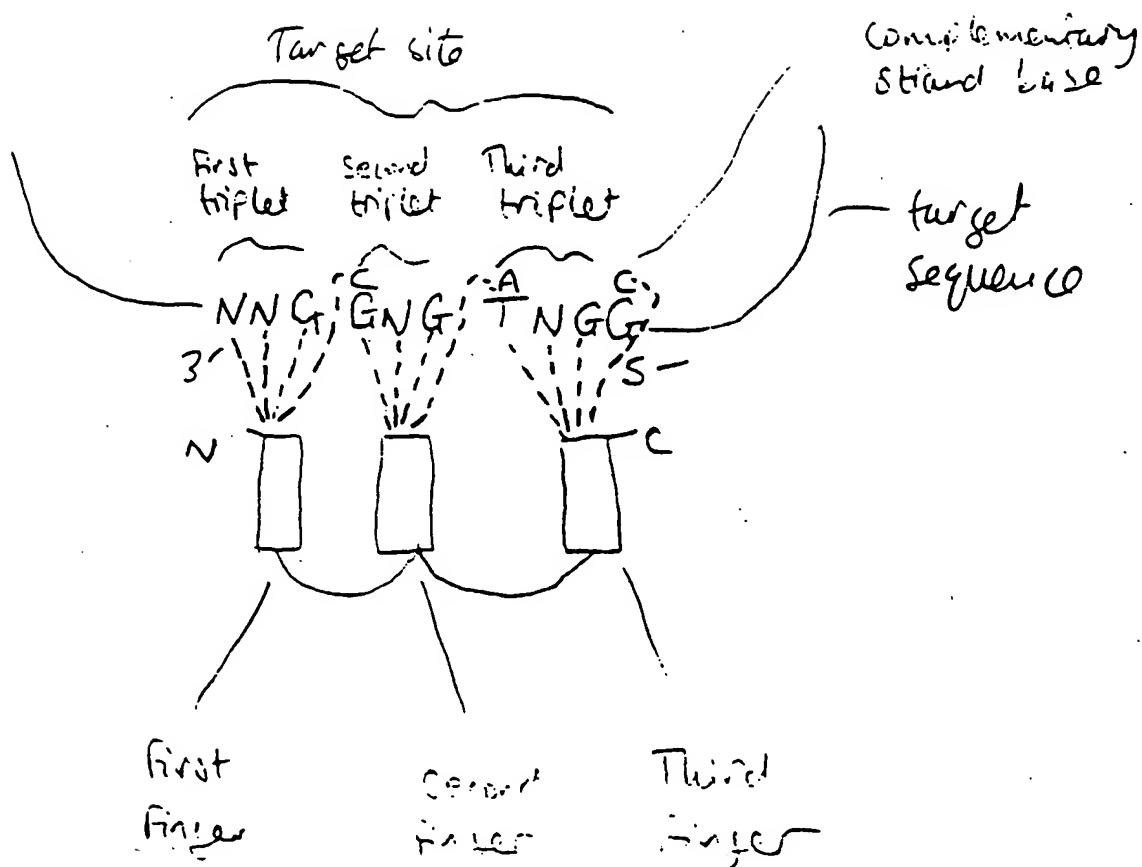 Target site
complementary
strand base
First
triplet
second
triplet
Third
triplet
target
sequence
C A C
NNG GNG TNGG
3' 5-
N C
First
Finger
Second
finger
Third
finger